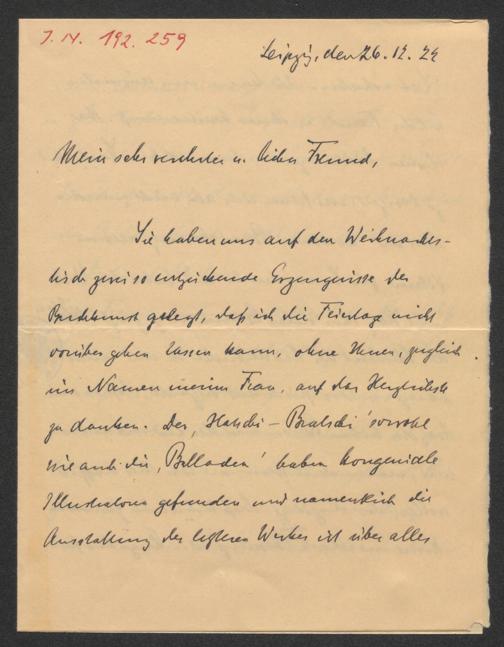 J. N. 192.259
Leipzig, den 26.12.22
Mein sehr verehrter u. lieber Freund,
Sie haben uns auf den Weihnachts-
tisch zwei so entzückende Erzeugnisse der
Buchkunst gelegt, daß ich die Feiertage nicht
vorüber gehen lassen kann, ohne Ihnen, zugleich
im Namen meiner Frau, auf das Herzlichste
zu danken. Der 'Hatschi-Bratschi' sowohl
wie auch die 'Balladen' haben kongeniale
Illustratoren gefunden und namentlich die
Ausstattung des letzteren Werkes ist über alles